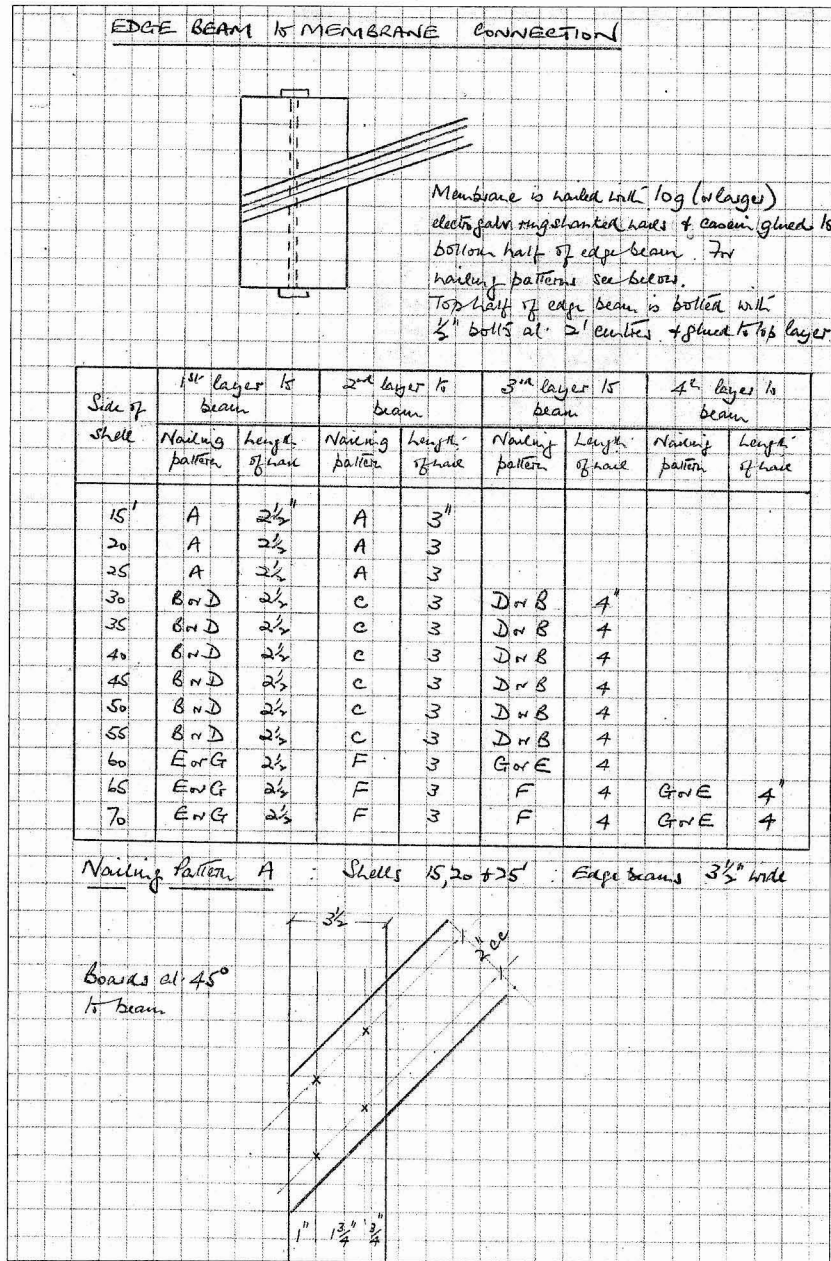 EDGE BEAM to MEMBRANE CONNECTION
Membrane is nailed with 10g (or larger)
electrogalv. ringshanked nails & casein glued to
bottom half of edge beam. For
nailing patterns see below.
Top half of edge beam is bolted with
½" bolts at 2' centres & glued to top layer.
Side of shell 1st layer to beam 2nd layer to beam 3rd layer to beam 4th layer to beam
Nailing pattern Length of nail Nailing pattern Length of nail Nailing pattern Length of nail Nailing pattern Length of nail
15' A 2½" A 3"
20 A 2½ A 3
25 A 2½ A 3
30 B or D 2½ C 3 D or B 4"
35 B or D 2½ C 3 D or B 4
40 B or D 2½ C 3 D or B 4
45 B or D 2½ C 3 D or B 4
50 B or D 2½ C 3 D or B 4
55 B or D 2½ C 3 D or B 4
60 E or G 2½ F 3 G or E 4
65 E or G 2½ F 3 F 4 G or E 4"
70 E or G 2½ F 3 F 4 G or E 4
Nailing Pattern A : Shells 15, 20 & 25' : Edge beams 3½" wide
3½
2" cc
Boards at 45°
to beam
1" 1¾" ¾"